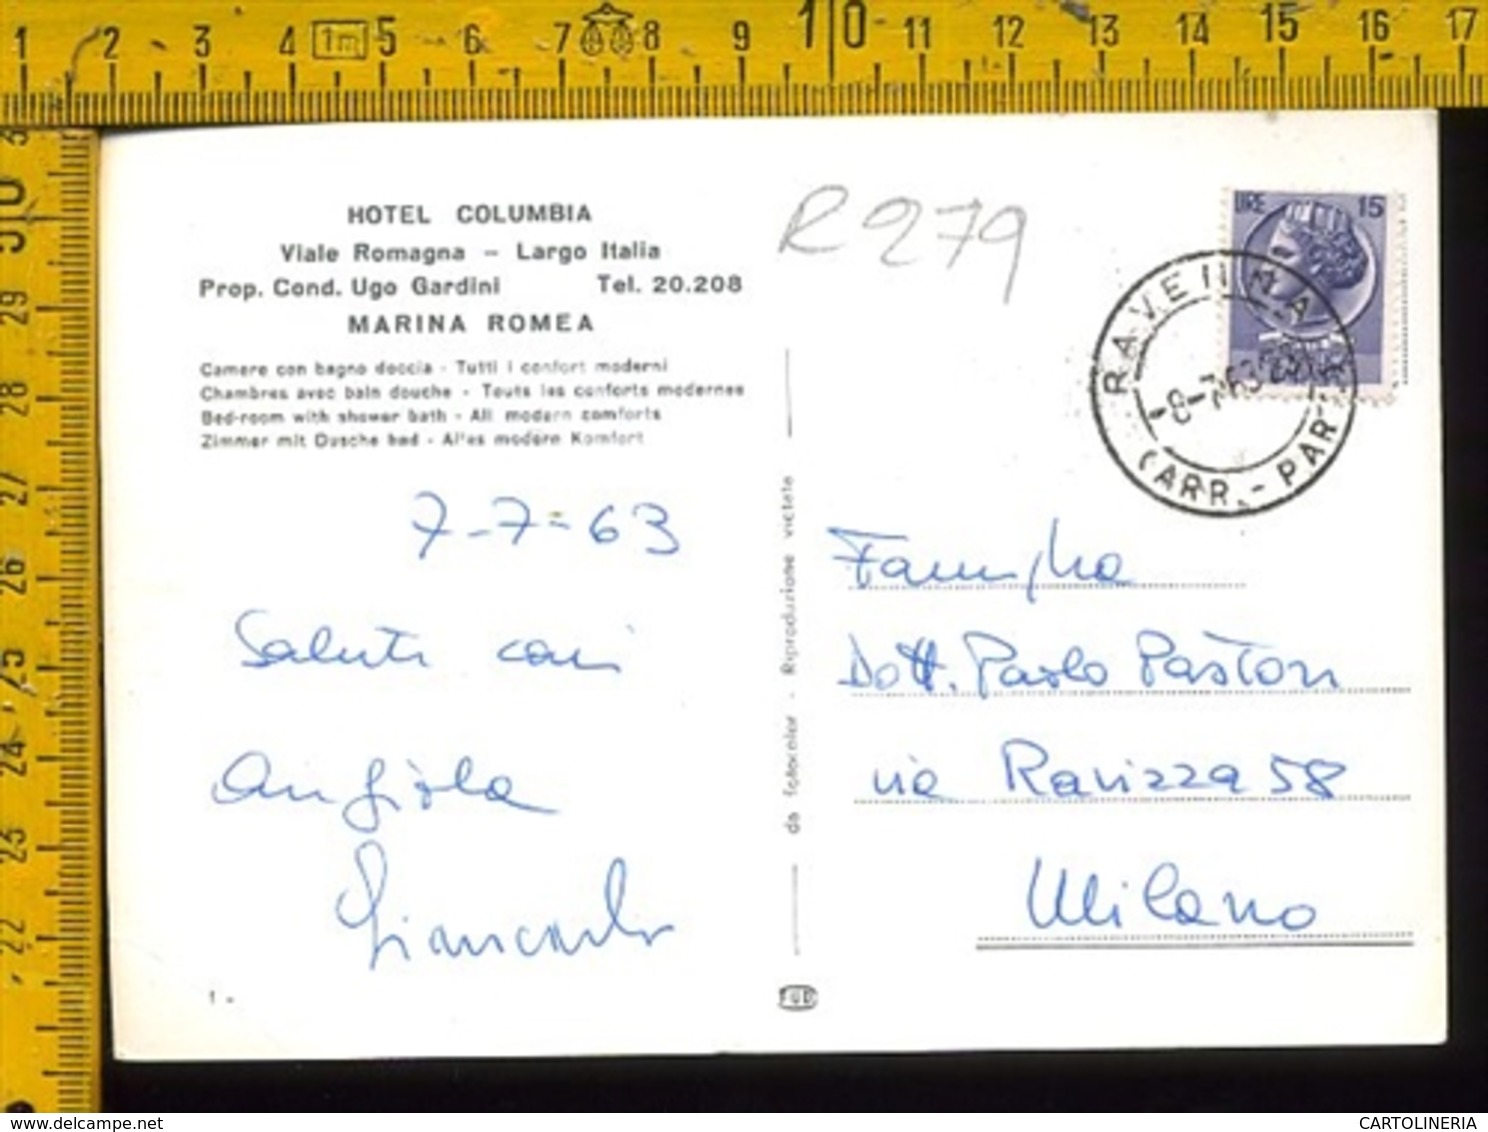 1 2 3 4 1m 5 6 7 8 9 10 11 12 13 14 15 16 17
30 29 28 27 26 25 24 23 22
HOTEL COLUMBIA
Viale Romagna – Largo Italia
Prop. Cond. Ugo Gardini Tel. 20.208
MARINA ROMEA
Camere con bagno doccia - Tutti i confort moderni
Chambres avec bain douche - Touts les conforts modernes
Bed-room with shower bath - All modern comforts
Zimmer mit Dusche bad - Alles modern Komfort
7-7-63
Saluti cari
Angiola
Giancarlo
1 -
da fotocolor - Riproduzione vietata
R 279
LIRE 15
RAVENNA
8-7-63
(ARR.-PAR.)
Famiglia
Dott. Paolo Pastori
via Ravizza 58
Milano
CARTOLINERIA